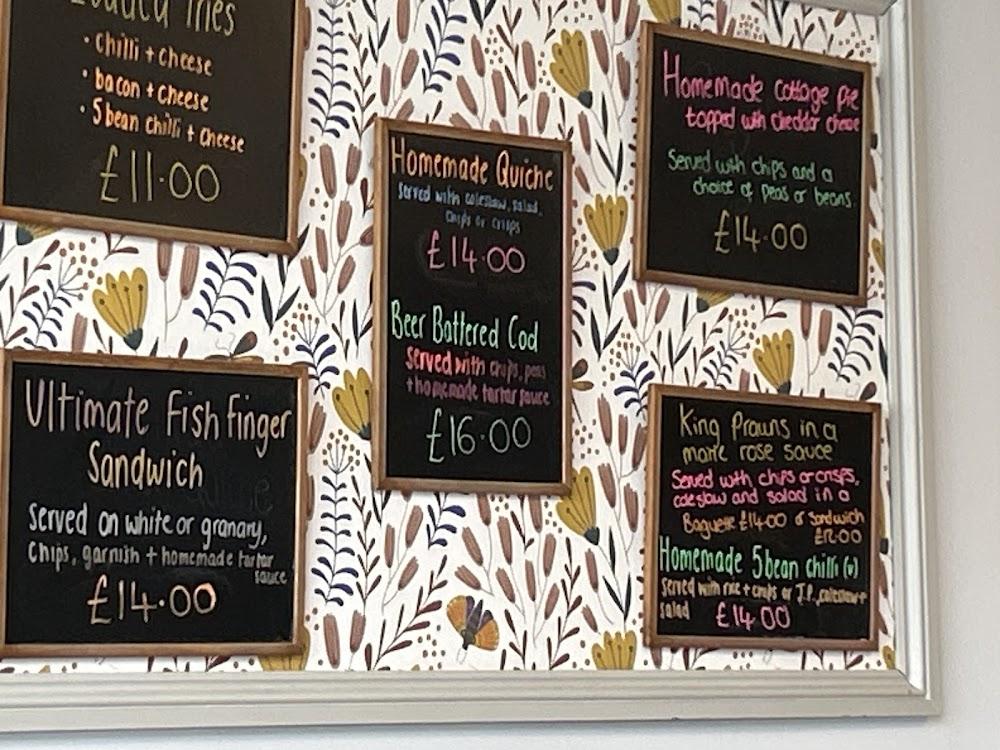 Loaded fries
• chilli + cheese
• bacon + cheese
• 5 bean chilli + cheese
£11.00
Ultimate Fish Finger
Sandwich
Served on white or granary,
Chips, garnish + homemade tartar
sauce
£14.00
Homemade Quiche
served with coleslaw, salad,
chips or crisps
£14.00
Beer Battered Cod
served with chips, peas
+ homemade tartar sauce
£16.00
Homemade cottage pie
topped with cheddar cheese
Served with chips and a
choice of peas or beans
£14.00
King Prawns in a
marie rose sauce
Served with chips or crisps,
coleslaw and salad in a
Baguette £14.00 or Sandwich
£12.00
Homemade 5 bean chilli (v)
served with rice + chips or J.P., coleslaw +
salad
£14.00